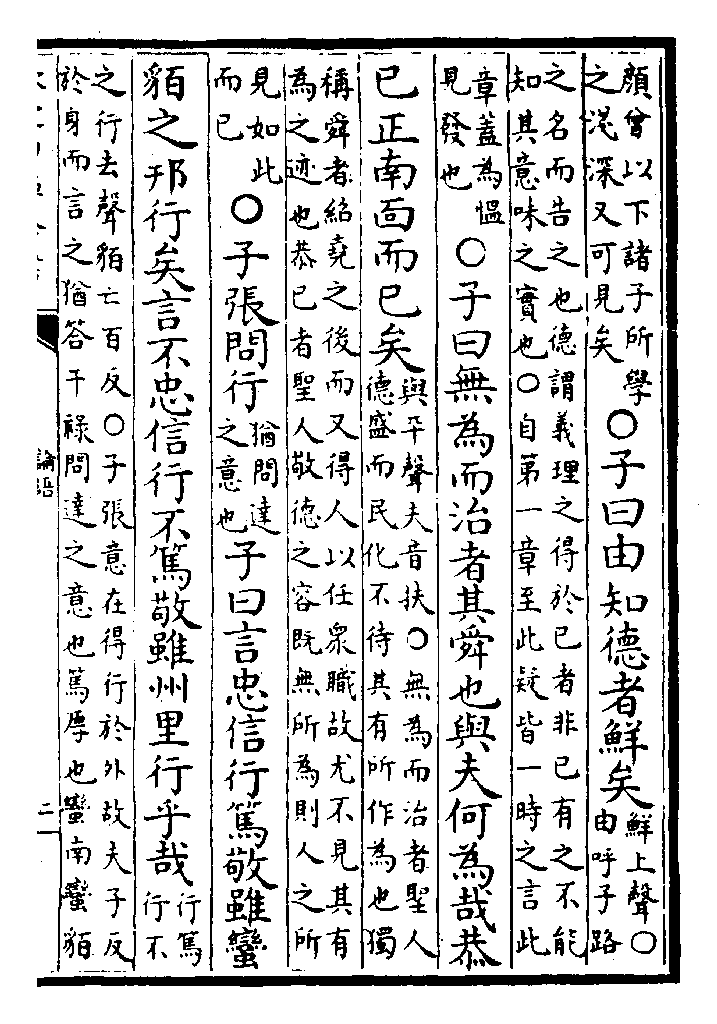 顔曾以下諸子所學
之淺深又可見矣
○子曰由知德者鮮矣
鮮上聲○
由呼子路
之名而告之也德謂義理之得於已者非已有之不能
知其意味之實也○自第一章至此疑皆一時之言此
章蓋為愠
見發也
○子曰無為而治者其舜也與夫何為哉恭
已正南面而已矣
與平聲夫音扶○無為而治者聖人
德盛而民化不待其有所作為也獨
稱舜者紹堯之後而又得人以任衆職故尤不見其有
為之迹也恭已者聖人敬德之容既無所為則人之所
見如此
而已
○子張問行
猶問達
之意也
子曰言忠信行篤敬雖蠻
貊之邦行矣言不忠信行不篤敬雖州里行乎哉
行篤
行不
之行去聲貊亡百反○子張意在得行於外故夫子反
於身而言之猶答干祿問達之意也篤厚也蠻南蠻貊
論語
二